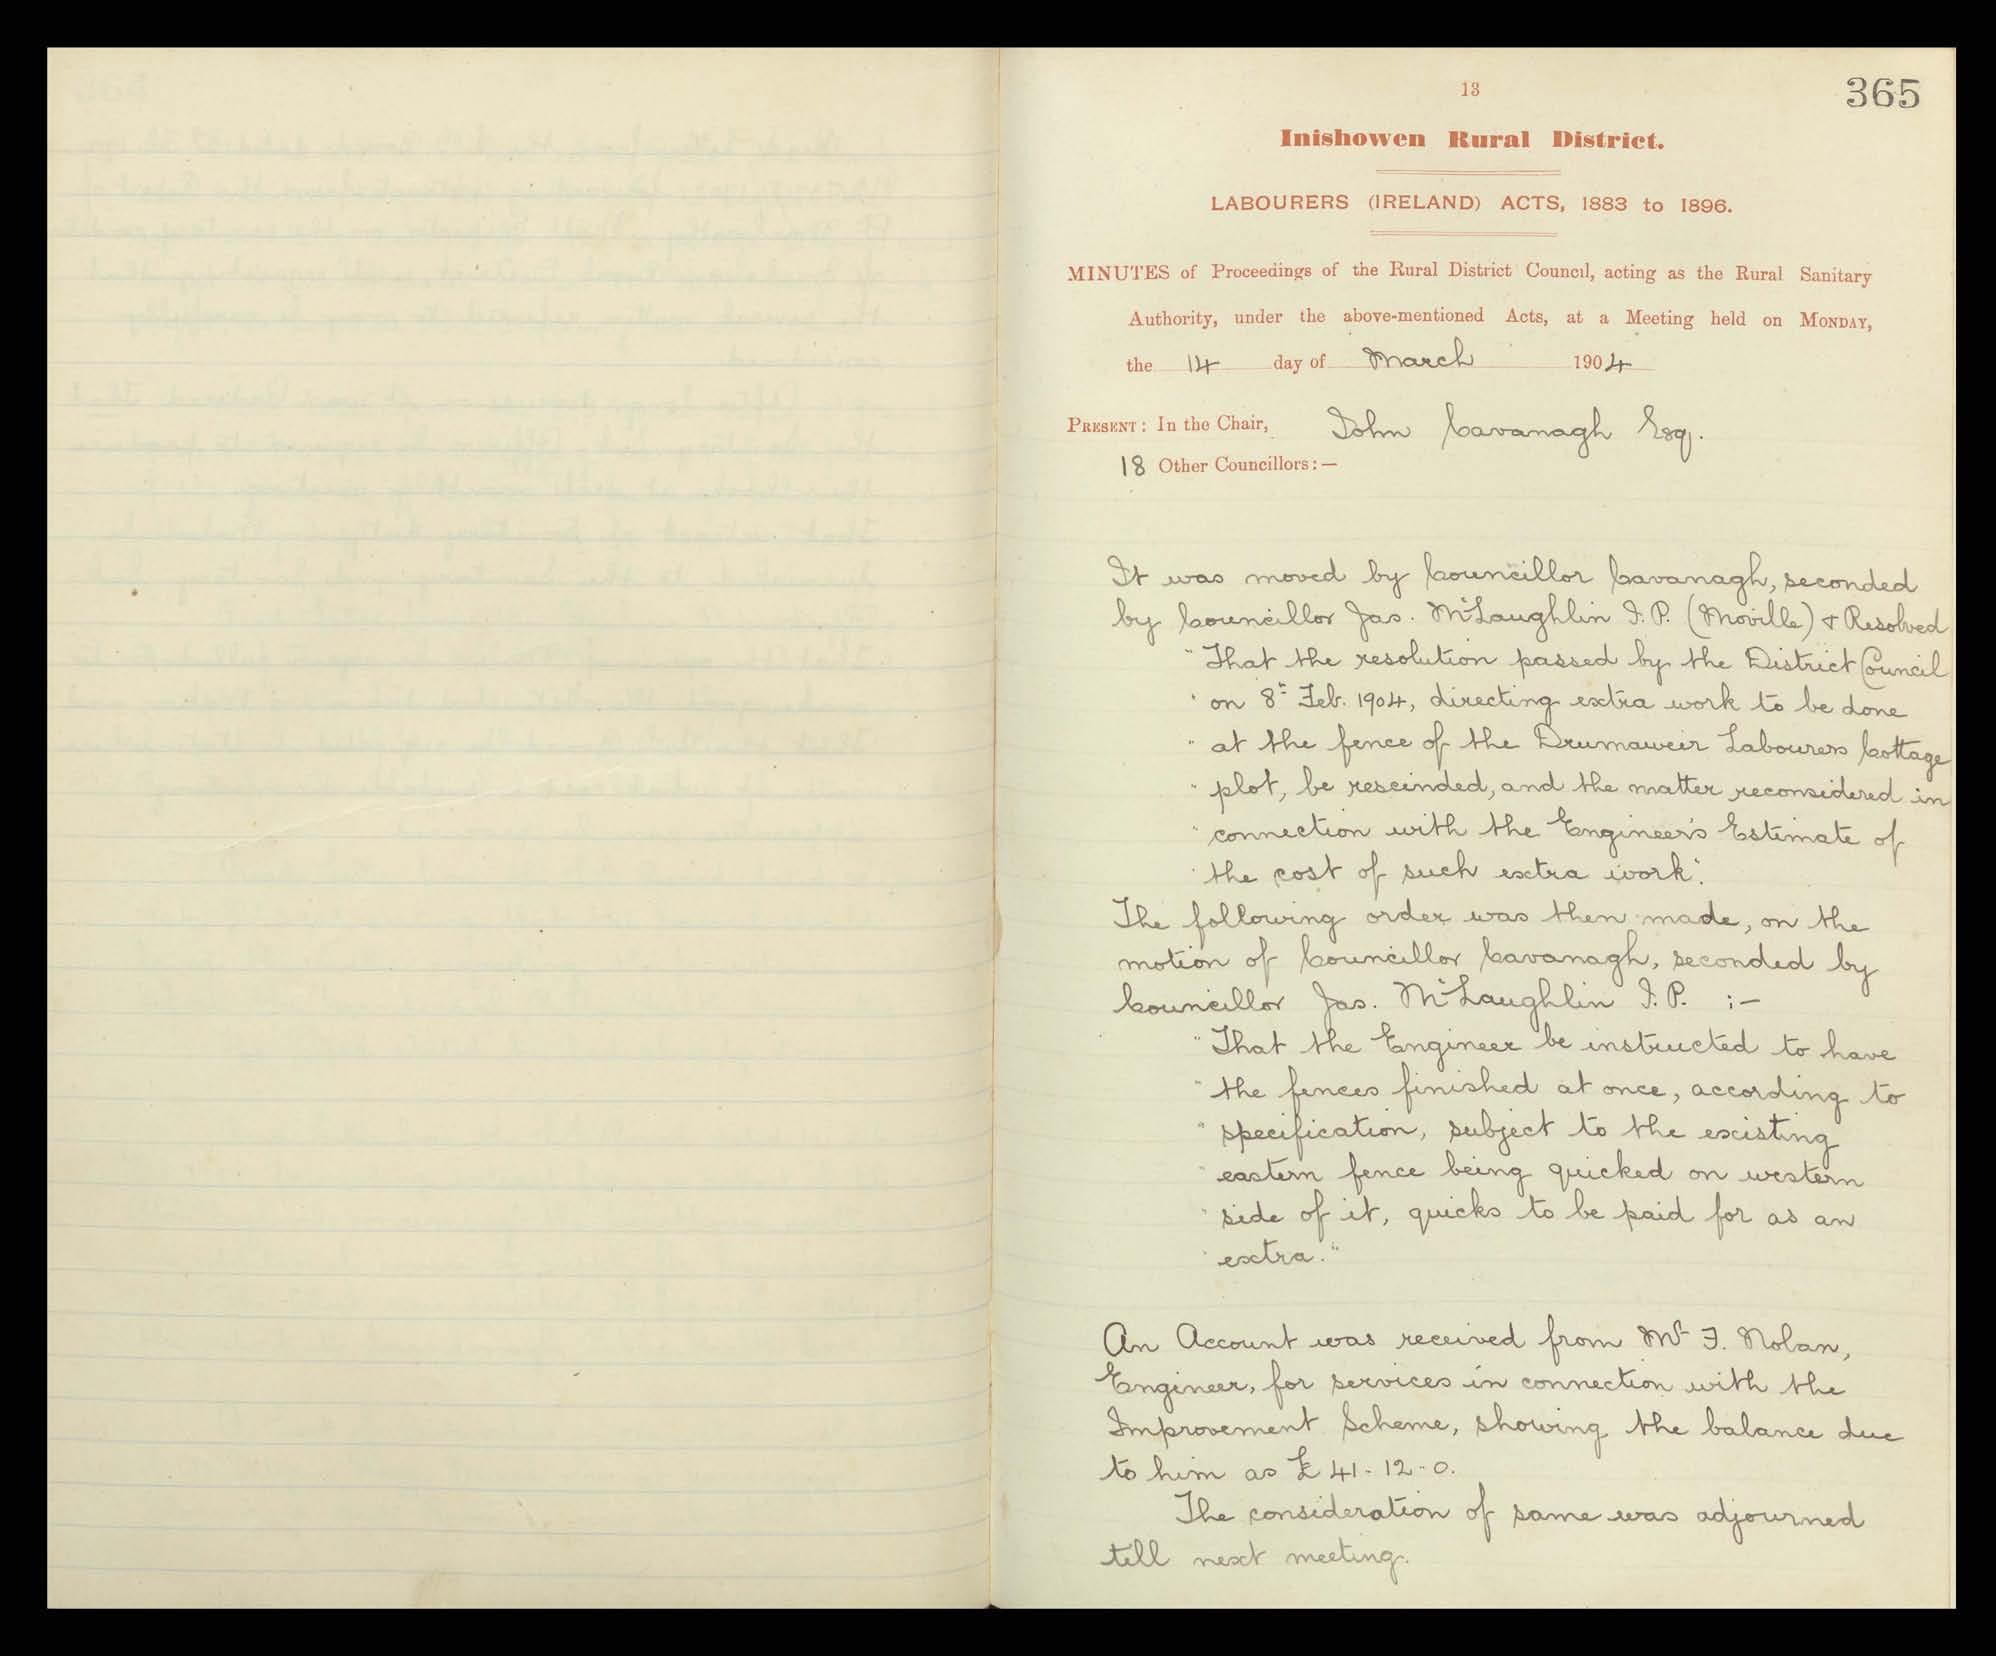 13
365
Inishowen Rural District.
LABOURERS (IRELAND) ACTS, 1883 to 1896.
MINUTES of Proceedings of the Rural District Council, acting as the Rural Sanitary
Authority, under the above-mentioned Acts, at a Meeting held on MONDAY,
the 14 day of March 1904
PRESENT: In the Chair, John Cavanagh Esq.
18 Other Councillors:—
It was moved by Councillor Cavanagh, seconded
by Councillor Jas. McLaughlin J.P. (Moville) & Resolved
"That the resolution passed by the District Council
" on 8th Feb. 1904, directing extra work to be done
" at the fence of the Drumaweir Labourers Cottage
" plot, be rescinded, and the matter reconsidered in
" connection with the Engineer's Estimate of
" the cost of such extra work".
The following order was then made, on the
motion of Councillor Cavanagh, seconded by
Councillor Jas. McLaughlin J.P. :—
"That the Engineer be instructed to have
" the fences finished at once, according to
" specification, subject to the existing
" eastern fence being quicked on western
" side of it, quicks to be paid for as an
" extra."
An Account was received from Mr F. Nolan,
Engineer, for services in connection with the
Improvement Scheme, showing the balance due
to him as £41-12-0.
The consideration of same was adjourned
till next meeting.